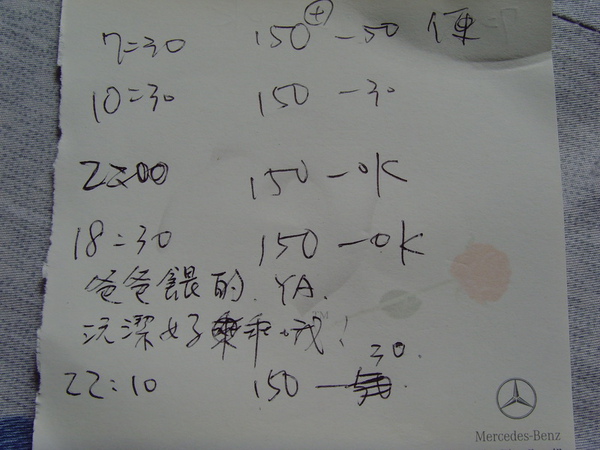 7:30 150⊕ -50 便
10:30 150 -30
2:00 150 -OK
18:30 150 -OK
爸爸餵的 YA.
洗澡好乖哦!
22:10 150 - 30.
Mercedes-Benz